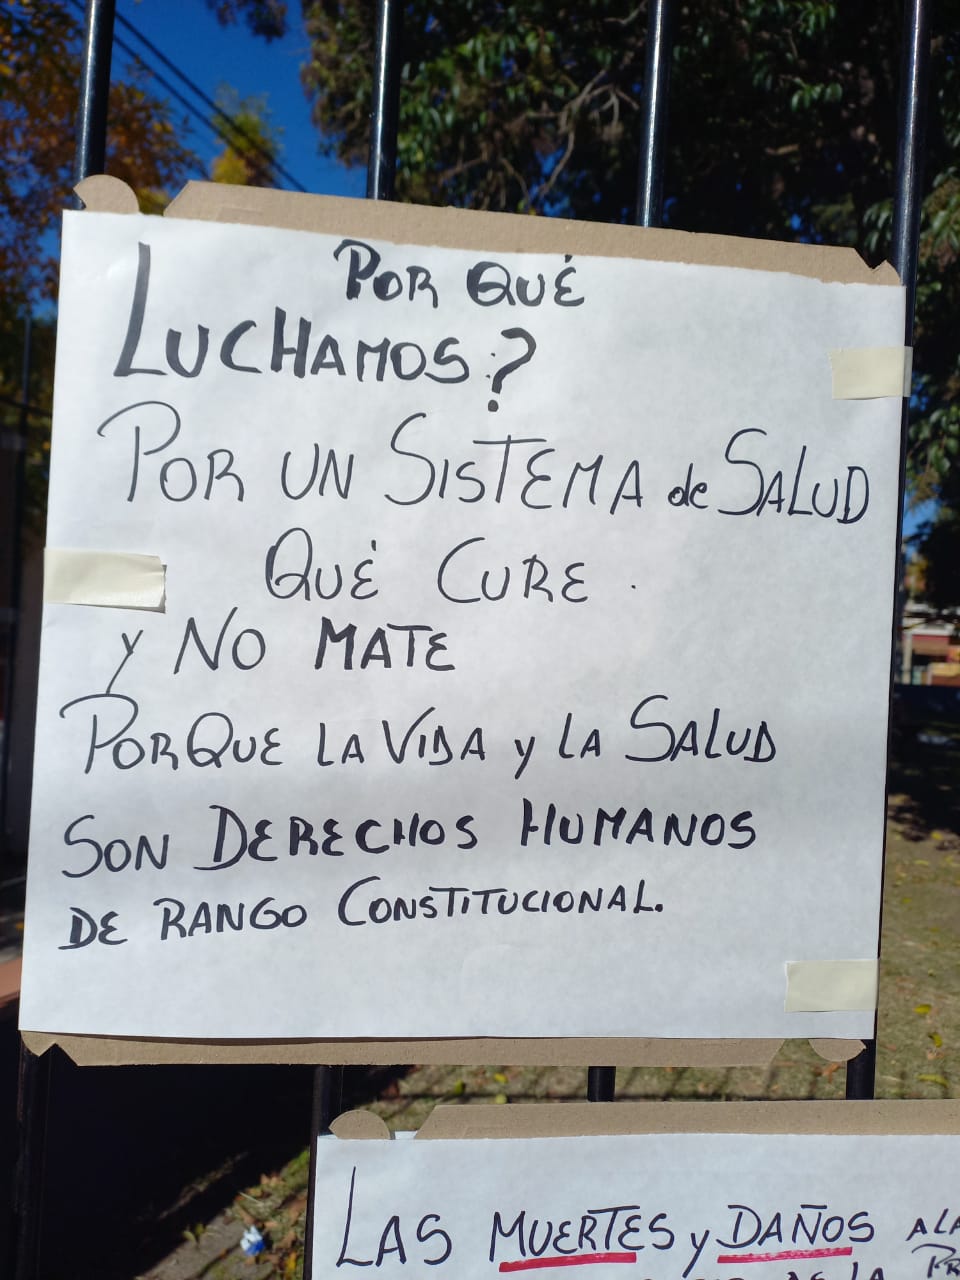 POR QUÉ
LUCHAMOS?
POR UN SISTEMA de SALUD
QUÉ CURE.
y NO MATE
PORQUE LA VIDA y LA SALUD
SON DERECHOS HUMANOS
DE RANGO CONSTITUCIONAL.
LAS MUERTES y DAÑOS A LA
DE LA